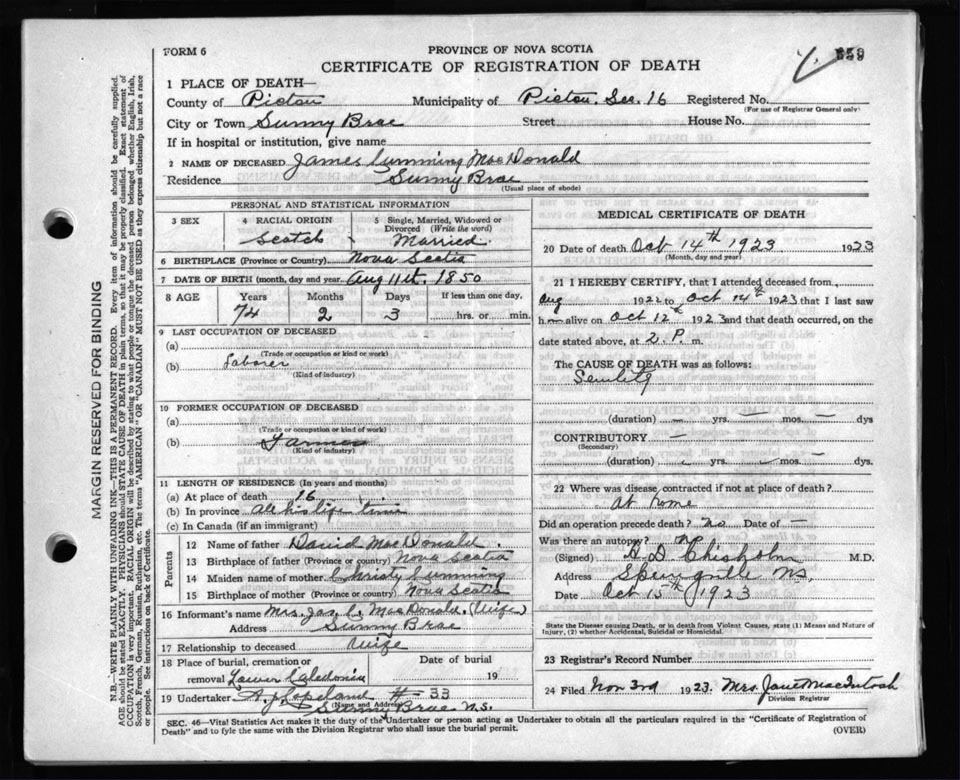 FORM 6
PROVINCE OF NOVA SCOTIA
559
CERTIFICATE OF REGISTRATION OF DEATH
1 PLACE OF DEATH—
County of Pictou Municipality of Pictou. Sec. 16 Registered No.
(For use of Registrar General only)
City or Town Sunny Brae Street House No.
If in hospital or institution, give name
2 NAME OF DECEASED James Cumming MacDonald
Residence Sunny Brae
(Usual place of abode)
PERSONAL AND STATISTICAL INFORMATION
3 SEX 4 RACIAL ORIGIN 5 Single, Married, Widowed or Divorced (Write the word)
Scotch Married.
6 BIRTHPLACE (Province or Country) Nova Scotia
7 DATE OF BIRTH (month, day and year) Aug 11th. 1850
8 AGE Years Months Days If less than one day,
74 2 3 hrs. or min.
9 LAST OCCUPATION OF DECEASED
(a)
(Trade or occupation or kind of work)
(b) Laborer
(Kind of industry)
10 FORMER OCCUPATION OF DECEASED
(a)
(Trade or occupation or kind of work)
(b) Farmer
(Kind of industry)
11 LENGTH OF RESIDENCE (In years and months)
(a) At place of death 16
(b) In province all his life time
(c) In Canada (if an immigrant)
Parents
12 Name of father David MacDonald.
13 Birthplace of father (Province or country) Nova Scotia
14 Maiden name of mother Christy Cumming
15 Birthplace of mother (Province or country) Nova Scotia
16 Informant's name Mrs. Jas. C. MacDonald. (Wife)
Address Sunny Brae
17 Relationship to deceased Wife
18 Place of burial, cremation or removal Lower Caledonia Date of burial 19
19 Undertaker A. J. Copeland # 33
(Name and Address)
Sunny Brae N.S.
MEDICAL CERTIFICATE OF DEATH
20 Date of death Oct 14th 1923 1923
(Month, day and year)
21 I HEREBY CERTIFY, that I attended deceased from,
Aug 1922 to Oct 14th 1923 that I last saw
h alive on Oct 12th 1923 and that death occurred, on the
date stated above, at 2. P. m.
The CAUSE OF DEATH was as follows:
Senility
(duration) — yrs. — mos. — dys
CONTRIBUTORY —
(Secondary)
(duration) - yrs. - mos. - dys.
22 Where was disease contracted if not at place of death?
At home
Did an operation precede death? No Date of —
Was there an autopsy? No
(Signed) H. D. Chisholm M.D.
Address Springville N.S.
Date Oct 15th 1923
State the Disease causing Death, or in death from Violent Causes, state (1) Means and Nature of
Injury, (2) whether Accidental, Suicidal or Homicidal.
23 Registrar's Record Number
24 Filed Nov 3rd 1923. Mrs. Jane MacIntosh
Division Registrar
SEC. 46—Vital Statistics Act makes it the duty of the Undertaker or person acting as Undertaker to obtain all the particulars required in the "Certificate of Registration of
Death" and to fyle the same with the Division Registrar who shall issue the burial permit.
(OVER)
MARGIN RESERVED FOR BINDING
N.B.—WRITE PLAINLY WITH UNFADING INK—THIS IS A PERMANENT RECORD. Every item of information should be carefully supplied.
AGE should be stated EXACTLY. PHYSICIANS should STATE CAUSE OF DEATH in plain terms, so that it may be properly classified. Exact statement of
OCCUPATION is very important. RACIAL ORIGIN will be described by stating to what people or tongue the deceased person belonged whether English, Irish,
Scotch, French, German, Russian, Ruthenian, etc. The terms "AMERICAN" or "CANADIAN" MUST NOT BE USED as they express citizenship but not a race
or people. See instructions on back of Certificate.